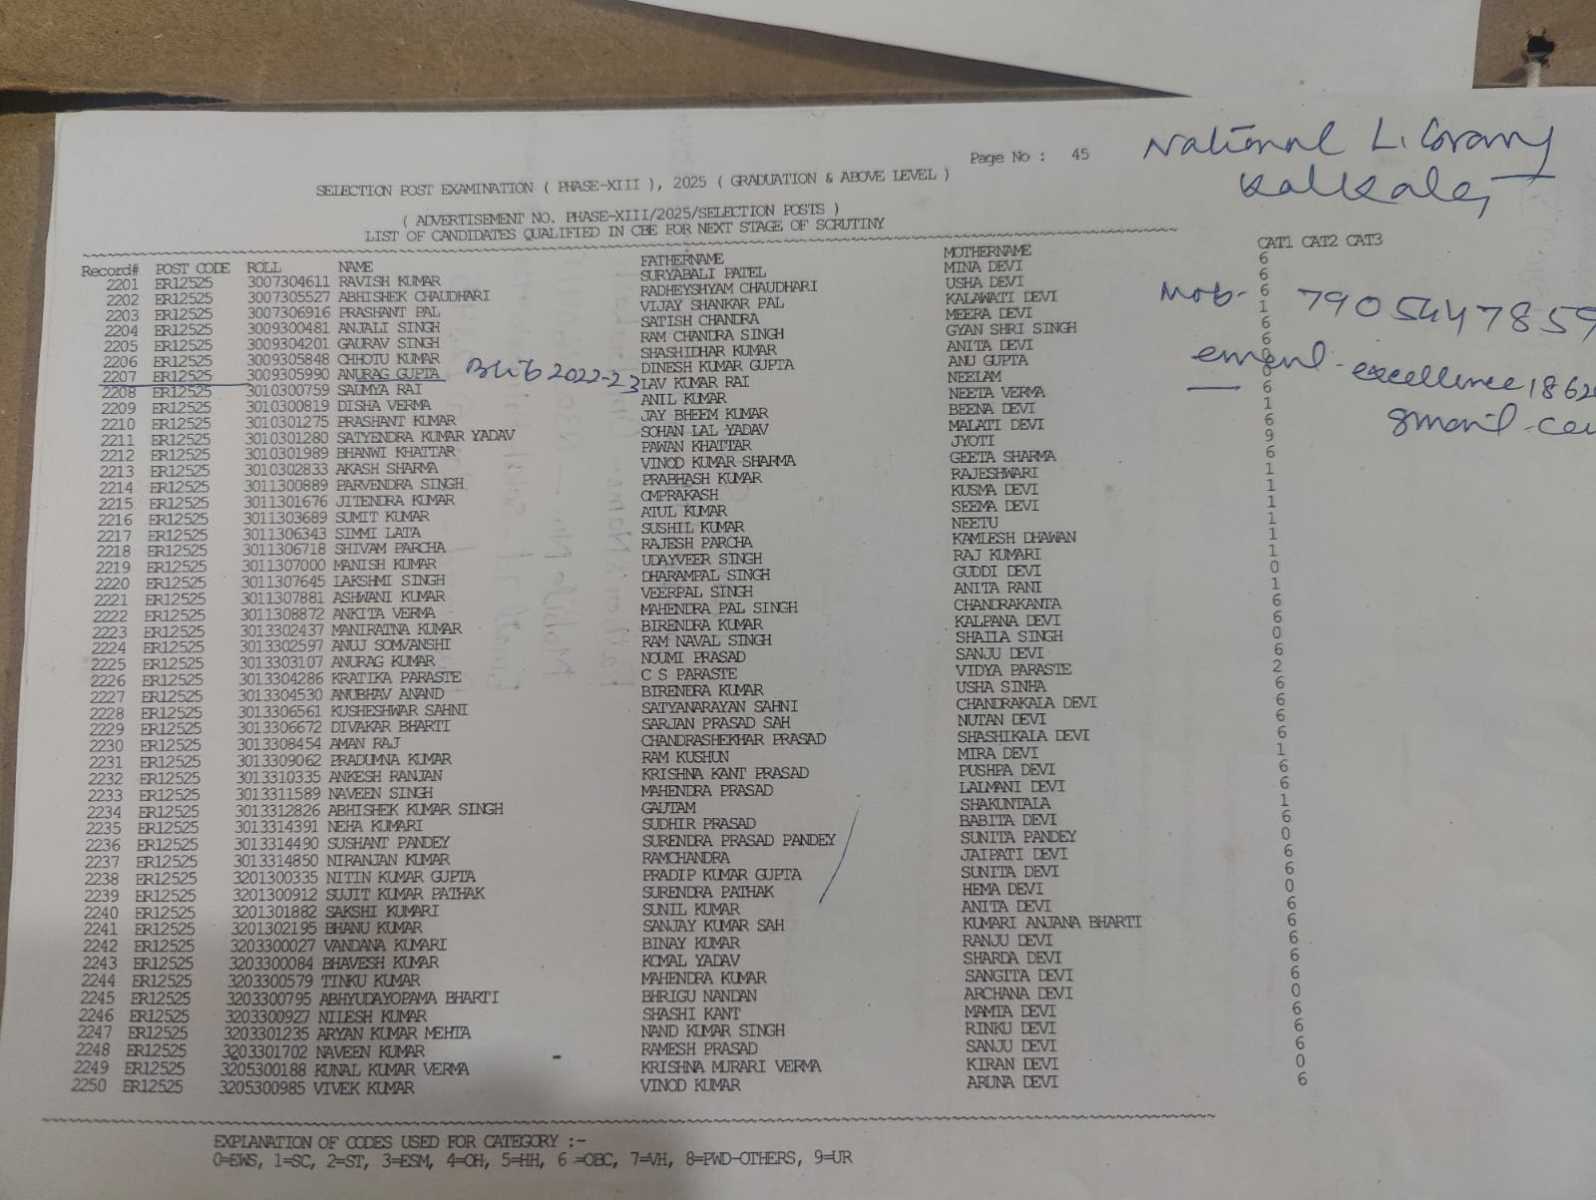 National Library
Kolkata
Page No : 45
SELECTION POST EXAMINATION ( PHASE-XIII ), 2025 ( GRADUATION & ABOVE LEVEL )
( ADVERTISEMENT NO. PHASE-XIII/2025/SELECTION POSTS )
LIST OF CANDIDATES QUALIFIED IN CBE FOR NEXT STAGE OF SCRUTINY
Record# POST CODE ROLL NAME FATHERNAME MOTHERNAME CAT1 CAT2 CAT3
2201 ER12525 3007304611 RAVISH KUMAR SURYABALI PATEL MINA DEVI 6
2202 ER12525 3007305527 ABHISHEK CHAUDHARI RADHEYSHYAM CHAUDHARI USHA DEVI 6
2203 ER12525 3007306916 PRASHANT PAL VIJAY SHANKAR PAL KALAWATI DEVI 6
2204 ER12525 3009300481 ANJALI SINGH SATISH CHANDRA MEERA DEVI 1
Mob- 7905447859
2205 ER12525 3009304201 GAURAV SINGH RAM CHANDRA SINGH GYAN SHRI SINGH 6
2206 ER12525 3009305848 CHHOTU KUMAR SHASHIDHAR KUMAR ANITA DEVI 6
2207 ER12525 3009305990 ANURAG GUPTA BLib 2022-23 DINESH KUMAR GUPTA ANU GUPTA
email- excellence1862
gmail.com
2208 ER12525 3010300759 SAUMYA RAI LAV KUMAR RAI NEELAM
2209 ER12525 3010300819 DISHA VERMA ANIL KUMAR NEETA VERMA 6
2210 ER12525 3010301275 PRASHANT KUMAR JAY BHEEM KUMAR BEENA DEVI 1
2211 ER12525 3010301280 SATYENDRA KUMAR YADAV SOHAN LAL YADAV MALATI DEVI 6
2212 ER12525 3010301989 BHANWI KHATTAR PAWAN KHATTAR JYOTI 9
2213 ER12525 3010302833 AKASH SHARMA VINOD KUMAR SHARMA GEETA SHARMA 6
2214 ER12525 3011300889 PARVENDRA SINGH PRABHASH KUMAR RAJESHWARI 1
2215 ER12525 3011301676 JITENDRA KUMAR OMPRAKASH KUSMA DEVI 1
2216 ER12525 3011303689 SUMIT KUMAR ATUL KUMAR SEEMA DEVI 1
2217 ER12525 3011306343 SIMMI LATA SUSHIL KUMAR NEETU 1
2218 ER12525 3011306718 SHIVAM PARCHA RAJESH PARCHA KAMLESH DHAWAN 1
2219 ER12525 3011307000 MANISH KUMAR UDAYVEER SINGH RAJ KUMARI 1
2220 ER12525 3011307645 LAKSHMI SINGH DHARAMPAL SINGH GUDDI DEVI 0
2221 ER12525 3011307881 ASHWANI KUMAR VEERPAL SINGH ANITA RANI 1
2222 ER12525 3011308872 ANKITA VERMA MAHENDRA PAL SINGH CHANDRAKANTA 6
2223 ER12525 3013302437 MANIRATNA KUMAR BIRENDRA KUMAR KALPANA DEVI 6
2224 ER12525 3013302597 ANUJ SOMVANSHI RAM NAVAL SINGH SHAILA SINGH 0
2225 ER12525 3013303107 ANURAG KUMAR NOUMI PRASAD SANJU DEVI 6
2226 ER12525 3013304286 KRATIKA PARASTE C S PARASTE VIDYA PARASTE 2
2227 ER12525 3013304530 ANUBHAV ANAND BIRENDRA KUMAR USHA SINHA 6
2228 ER12525 3013306561 KUSHESHWAR SAHNI SATYANARAYAN SAHNI CHANDRAKALA DEVI 6
2229 ER12525 3013306672 DIVAKAR BHARTI SARJAN PRASAD SAH NUTAN DEVI 6
2230 ER12525 3013308454 AMAN RAJ CHANDRASHEKHAR PRASAD SHASHIKALA DEVI 6
2231 ER12525 3013309062 PRADUMNA KUMAR RAM KUSHUN MIRA DEVI 1
2232 ER12525 3013310335 ANKESH RANJAN KRISHNA KANT PRASAD PUSHPA DEVI 6
2233 ER12525 3013311589 NAVEEN SINGH MAHENDRA PRASAD LALMANI DEVI 6
2234 ER12525 3013312826 ABHISHEK KUMAR SINGH GAUTAM SHAKUNTALA 1
2235 ER12525 3013314391 NEHA KUMARI SUDHIR PRASAD BABITA DEVI 6
2236 ER12525 3013314490 SUSHANT PANDEY SURENDRA PRASAD PANDEY SUNITA PANDEY 0
2237 ER12525 3013314850 NIRANJAN KUMAR RAMCHANDRA JAIPATI DEVI 6
2238 ER12525 3201300335 NITIN KUMAR GUPTA PRADIP KUMAR GUPTA SUNITA DEVI 6
2239 ER12525 3201300912 SUJIT KUMAR PATHAK SURENDRA PATHAK HEMA DEVI 0
2240 ER12525 3201301882 SAKSHI KUMARI SUNIL KUMAR ANITA DEVI 6
2241 ER12525 3201302195 BHANU KUMAR SANJAY KUMAR SAH KUMARI ANJANA BHARTI 6
2242 ER12525 3203300027 VANDANA KUMARI BINAY KUMAR RANJU DEVI 6
2243 ER12525 3203300084 BHAVESH KUMAR KOMAL YADAV SHARDA DEVI 6
2244 ER12525 3203300579 TINKU KUMAR MAHENDRA KUMAR SANGITA DEVI 6
2245 ER12525 3203300795 ABHYUDAYOPAMA BHARTI BHRIGU NANDAN ARCHANA DEVI 0
2246 ER12525 3203300927 NILESH KUMAR SHASHI KANT MAMTA DEVI 6
2247 ER12525 3203301235 ARYAN KUMAR MEHTA NAND KUMAR SINGH RINKU DEVI 6
2248 ER12525 3203301702 NAVEEN KUMAR RAMESH PRASAD SANJU DEVI 6
2249 ER12525 3205300188 KUNAL KUMAR VERMA KRISHNA MURARI VERMA KIRAN DEVI 0
2250 ER12525 3205300985 VIVEK KUMAR VINOD KUMAR ARUNA DEVI 6
EXPLANATION OF CODES USED FOR CATEGORY :-
0=EWS, 1=SC, 2=ST, 3=ESM, 4=OH, 5=HH, 6 =OBC, 7=VH, 8=PWD-OTHERS, 9=UR